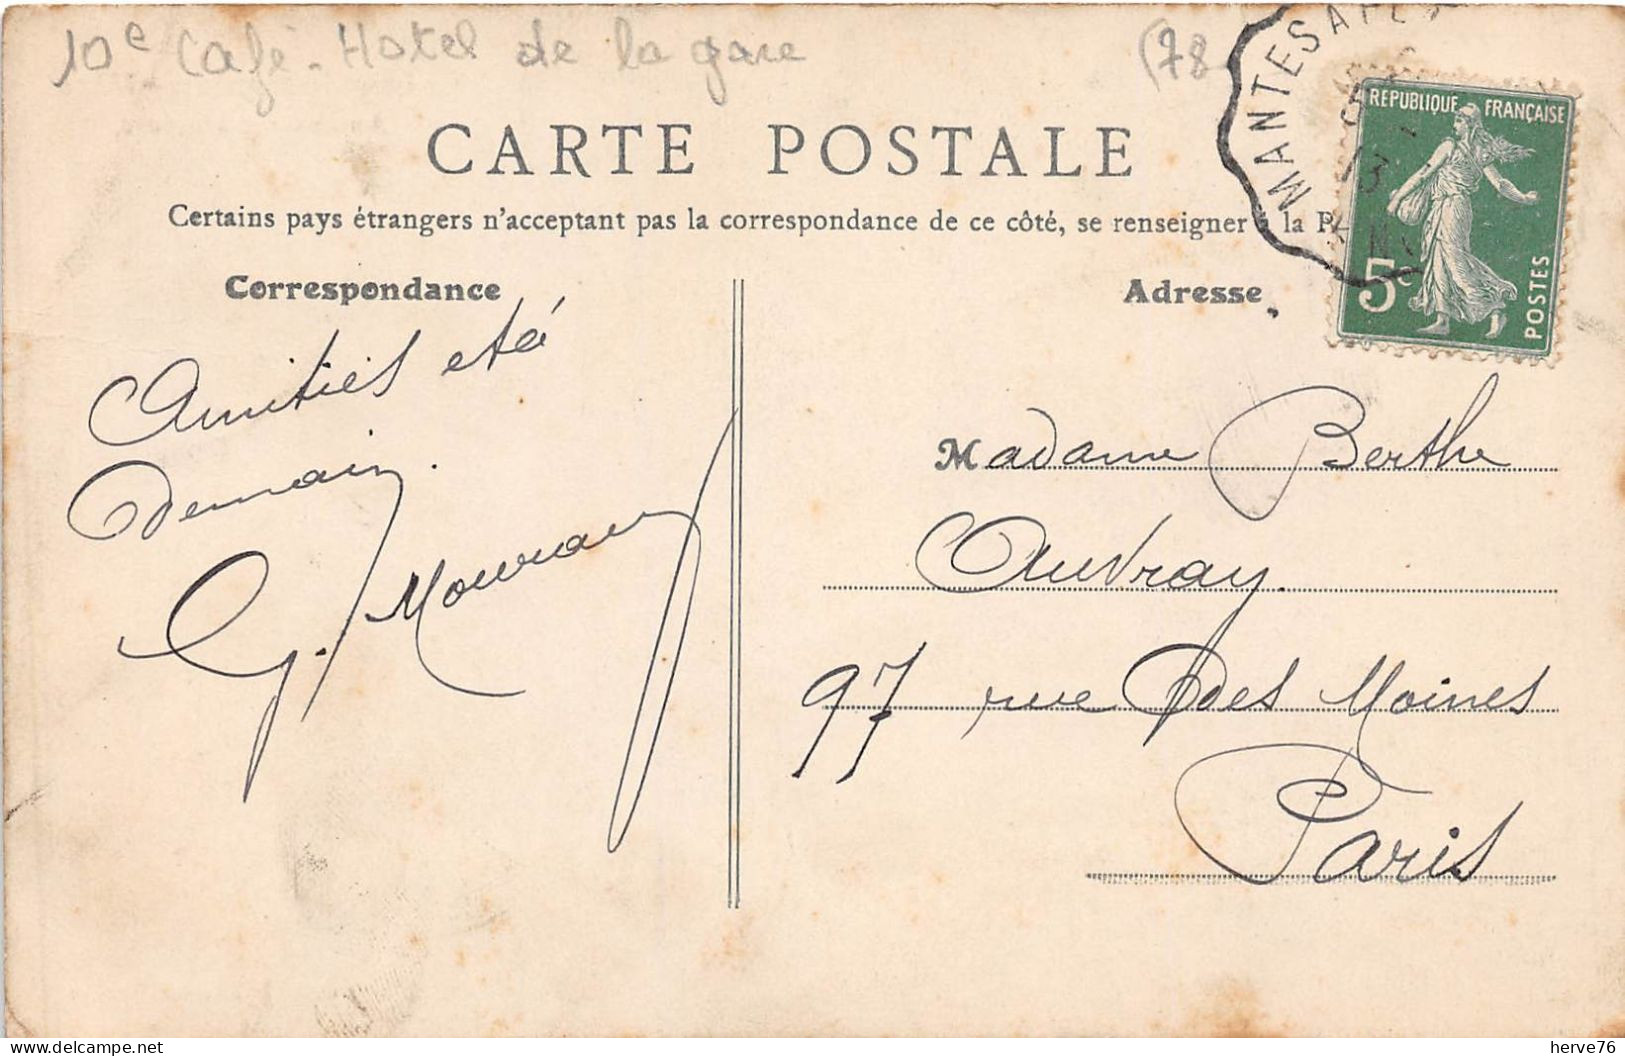 10e Café - Hotel de la gare (78
MANTES A
RÉPUBLIQUE FRANÇAISE
13
5c
POSTES
CARTE POSTALE
Certains pays étrangers n'acceptant pas la correspondance de ce côté, se renseigner à la P
Correspondance
Amitiés et à
Demain.
G.
Adresse
Madame Berthe
Auvray
97 rue Des Moines
Paris
herve76